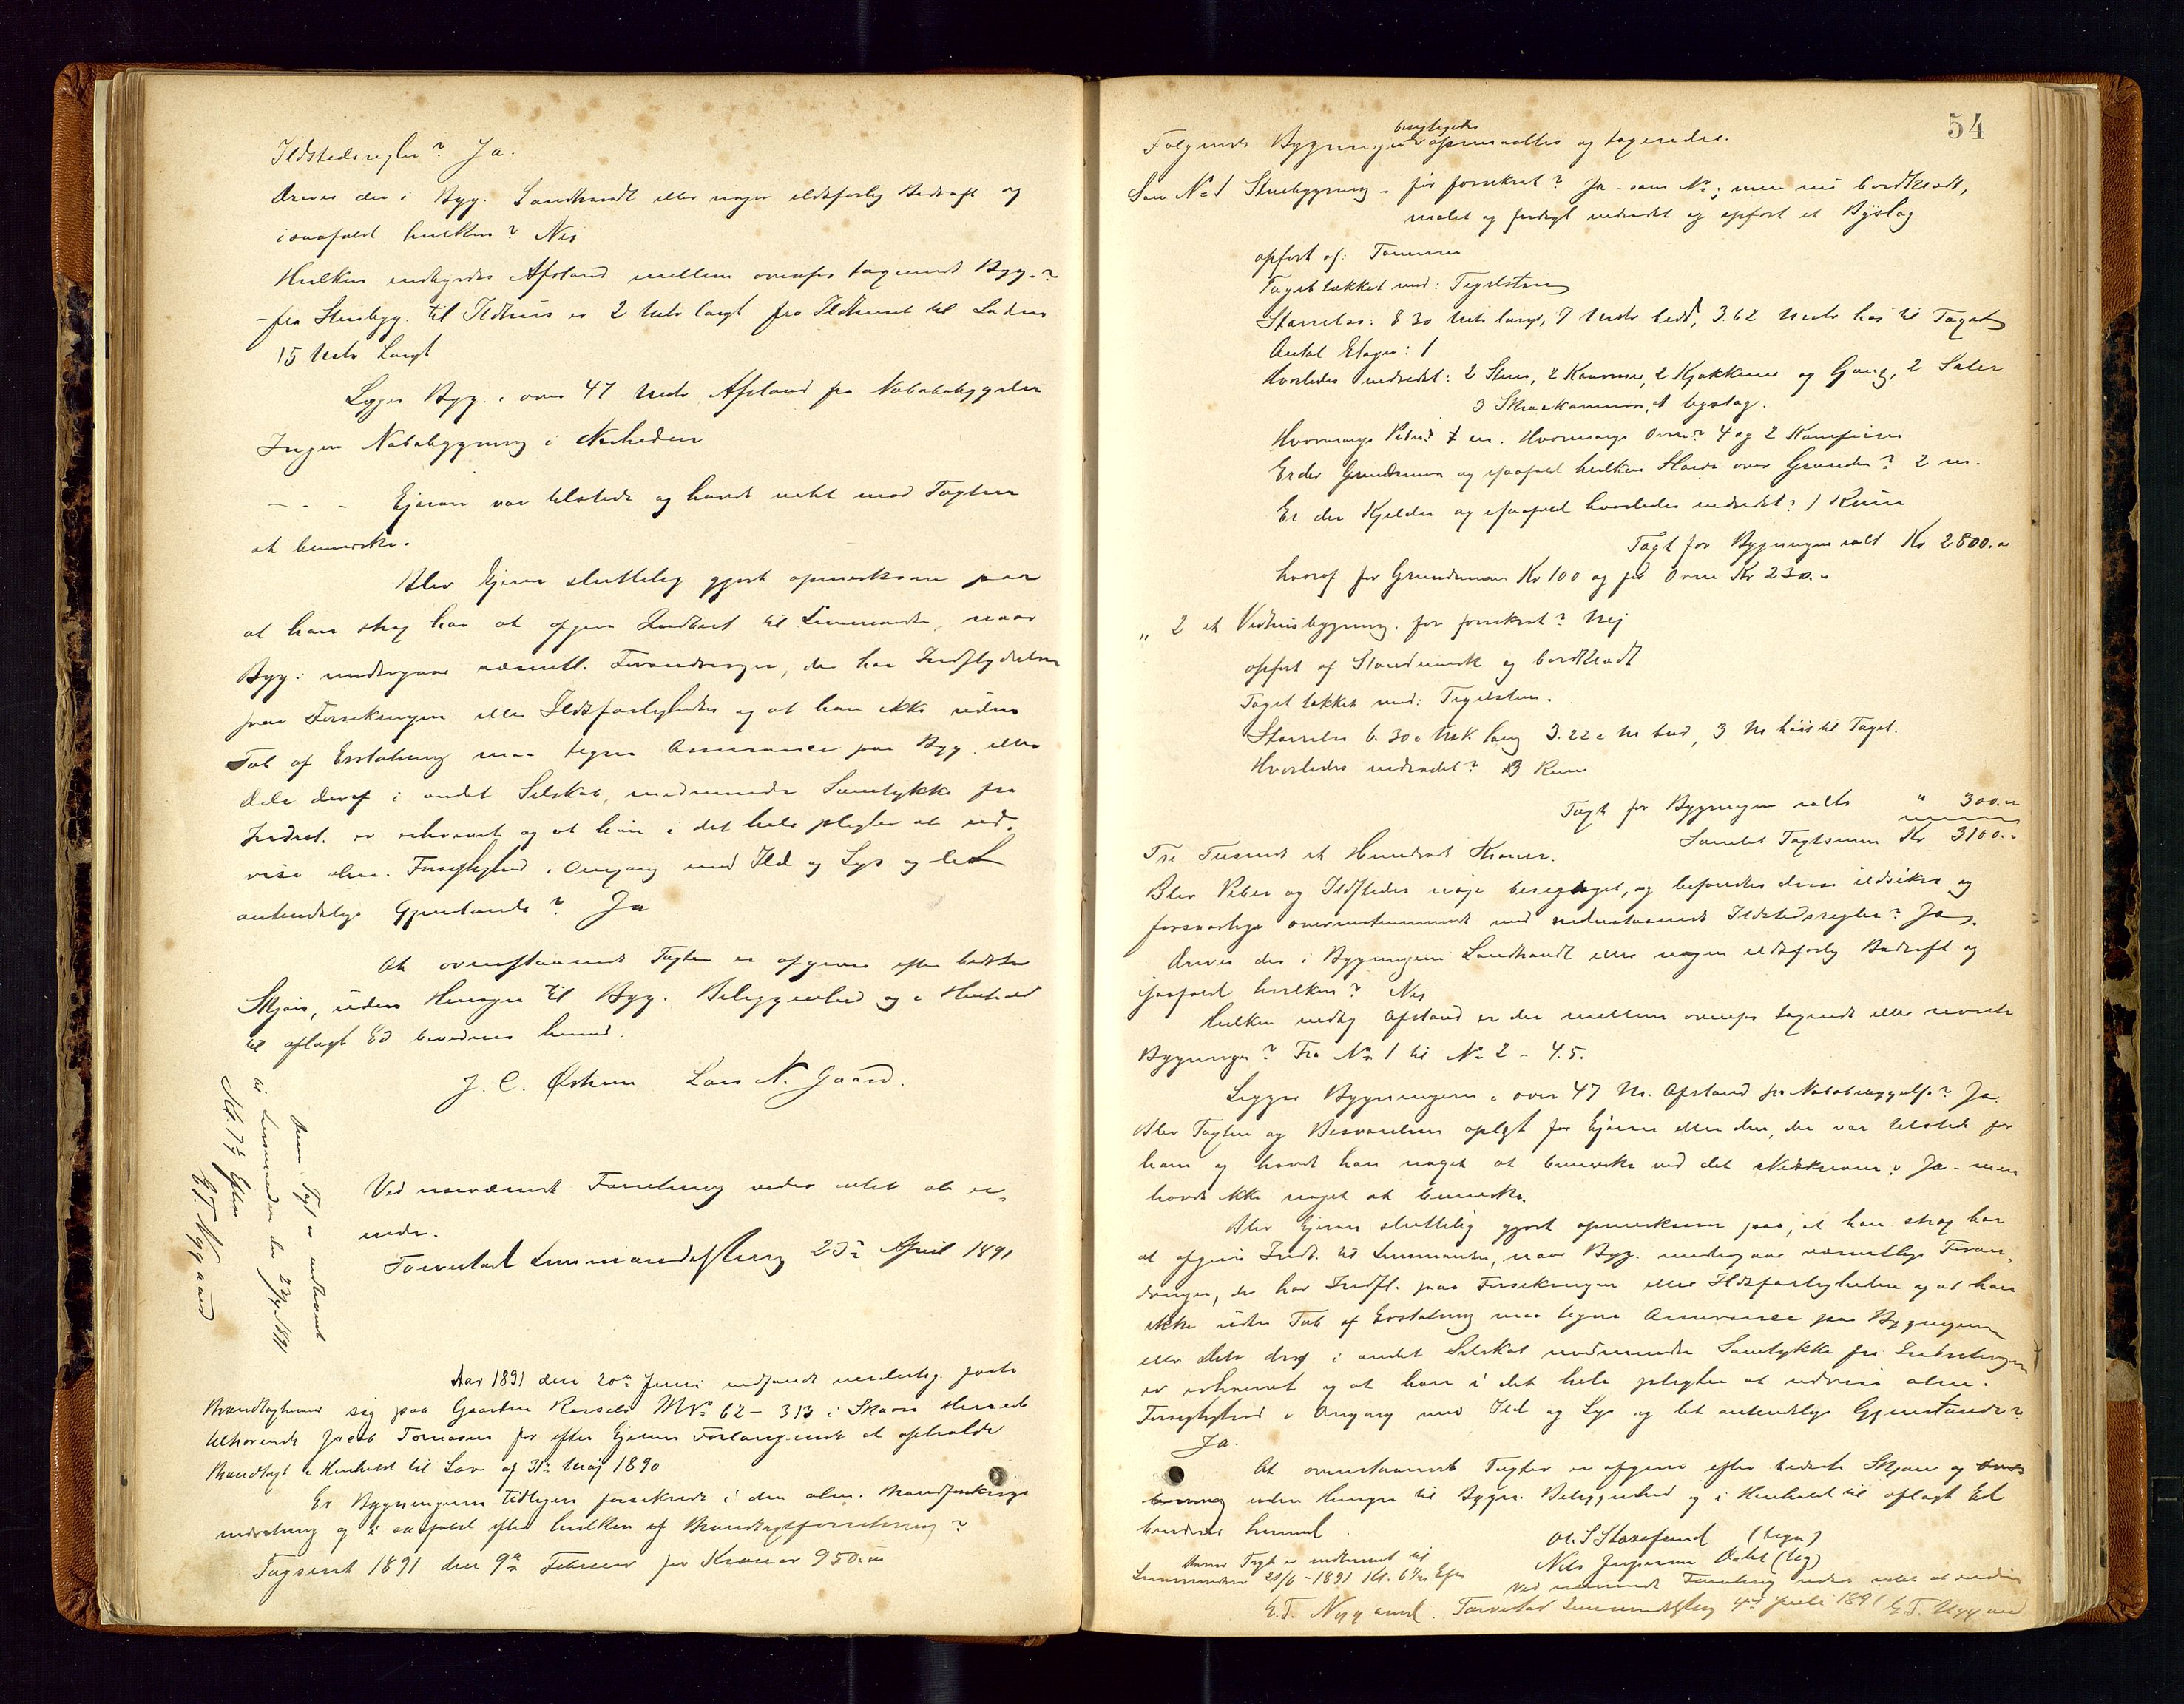 Ildstedsregler? Ja.
Drives der i Byg. Landhandl eller nogen ildsfarlig Bedrift og
isaafald hvilken? Nei
Hvilken indbyrdes Afstand mellem ovenfor tagerede Byg.?
- fra Stuebyg. til Ildhus er 2 Meter langt fra Ildhuset til Laden
15 Meter Langt
Ligger Byg. i over 47 Meter Afstand fra Nabobebyggelse
Ingen Nabobygning i Nærheden
- - - Ejeren var tilstede og havde intet mod Taxten
at bemærke.
Blev Ejeren sluttelig gjort opmærksom paa
at han strax har at afgive Indberet til Lensmanden, naar
Byg. undergaar væsentl. Forandringer, der har Indflydelse
paa Forsikringen eller Ildsfarligheden og at han ikke uden
Tab af Erstatning maa tegne Assurance paa Byg. eller
dele deraf i andet Selskab, medmindre Samtykke fra
Indret. er erhvervet og at han i det hele pligter at ud-
vise alm. Forsigtighed i Omgang med Ild og Lys og let
antændelige Gjenstande? Ja
At ovenstaaende Taxter er afgivne efter bedste
Skjøn, uden Hensyn til Byg. Beliggenhed og i Henhold
til aflagt Ed bevidnes herved.
J. C. Østhuus Lars N. Gaard.
Denne Taxt er indleveret
til Lensmanden den 23/4 1891
Kl. 7½ Eften
G.T. Nygaard
Ved nærværende Forretning vides intet at er-
indre.
Torvestad Lensmandsbestilling 25de April 1891
Aar 1891 den 20de Juni indfandt undertegn. faste
Brandtaxtmænd sig paa Gaarden M No 62 - 313 i Skaare Herred
tilhørende Jacob Tomasen for efter Ejerens Forlangende at afholde
Brandtaxt i Henhold til Lov af 31te Maj 1890
Er Bygningerne tidligere forsikrede i den alm. Brandforsikrings
indretning og i saafald efter hvilken af Brandtaxtforretning?
Tagseret 1891 den 9de Februar for Kroner 950.00
54
Følgende Bygninger besigtigedes opmaaltes og tagseredes.
Som No 1 Stuebygning - før forsikret? Ja - som No ; men nu bordklædt,
malet og færdigt indredet og opført et Bislag
opført af: Tømmer
Taget tækket med: Teglsten
Størrelse: 8.30 Meter langt, 7 Meter bred, 3.62 Meter høi til Taget
Antal Etager: 1
Hvorledes indredet: 2 Stuer, 2 Kammerse, 2 Kjøkkener og Gang, 2 Saler
3 Skraakammere, et bislag.
Hvormange Piber? en. Hvormange Ovne? 4 og 2 Komfurer
Er der Grundmur og isaafald hvilken Høide over Grunden? 2 m.
Er der Kjelder og isaafald hvorledes indredet? 1 Rum
Taxt for Bygningen ialt Kr 2800.00
hvoraf for Grundmuren Kr 100 og for Ovne Kr 230.00
" 2 et Vedhusbygning. før forsikret? Nej
opført af Standværk og bordklædt
Taget tækket med: Teglsten.
Størrelse 6.30 Mtr. lang 3.22 M bred, 3 M høi til Taget.
Hvorledes indredet? 3 Rum
Taxt for Bygningen ialt " 300.00
Samlet Taxtsum Kr 3100.00
Tre Tusende et Hundrede Kroner.
Blev Piber og Ildsteder nøje besigtiget, og befandtes disse ildsikre og
forsvarlige overensstemmende med Ildstedsregler? Ja.
Drives der i Bygningen Landhandl eller nogen ildsfarlig Bedrift og
isaafald hvilken? Nei
Hvilken indby Afstand er der mellem ovenfor tagserede eller
Bygninger? Fra No 1 til No 2 - 4.5.
Ligger Bygningerne i over 47 M. Afstand fra Nabobebyggelse? Ja.
Blev Taxten og Besvarelsen oplæst for Ejeren eller den, der var tilstede for
ham og havde han noget at bemærke ved det Nedskrevne? Ja - men
havde ikke noget at bemærke.
Blev Ejeren sluttelig gjort opmærksom paa, at han strax har
at afgive Indb. til Lensmanden, naar Byg. undergaar væsentlige Foran-
dringer, der har Indfl. paa Forsikringen eller Ildsfarligheden og at han
ikke uden Tab af Erstatning maa tegne Assurance paa Bygningerne
eller Dele deraf i andet Selskab medmindre Samtykke fra Indretningen
er erhvervet og at han i det hele pligter at udvise alm.
Forsigtighed i Omgang med Ild og Lys og let antændelige Gjenstande?
Ja.
At ovenstaaende Taxter er afgivne efter bedste Skjøn og
uden Hensyn til Bygn. Beliggenhed og i Henhold til aflagt Ed
bevidnes herved.
(tegn)
Nils (teg)
Denne Taxt er indleveret til
Lensmanden 21/6 - 1891 Kl. 6 Eften
G.T. Nygaard.
Ved nærværende Forretning vides intet at erindre
Torvestad Lensmandsbestilling 4de Juli 1891 G.T. Nygaard